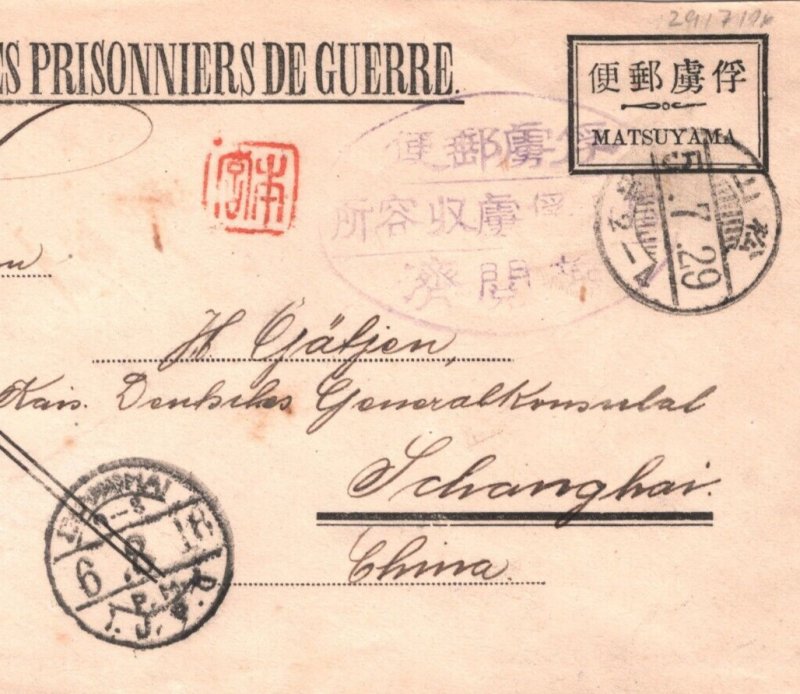 29/7/16
ES PRISONNIERS DE GUERRE.
俘虜郵便
MATSUYAMA
俘虜郵便
俘虜収容所
検閲濟
松山
5.7.29
H. Gätjen,
Kais. Deutsches Generalkonsulat
Schanghai.
China.
SHANGHAI
18
6
I.J.P.O.